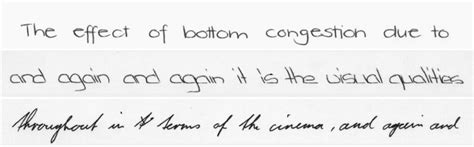 The effect of bottom congestion due to
and again and again it is the visual qualities
throughout in the terms of the cinema, and again and